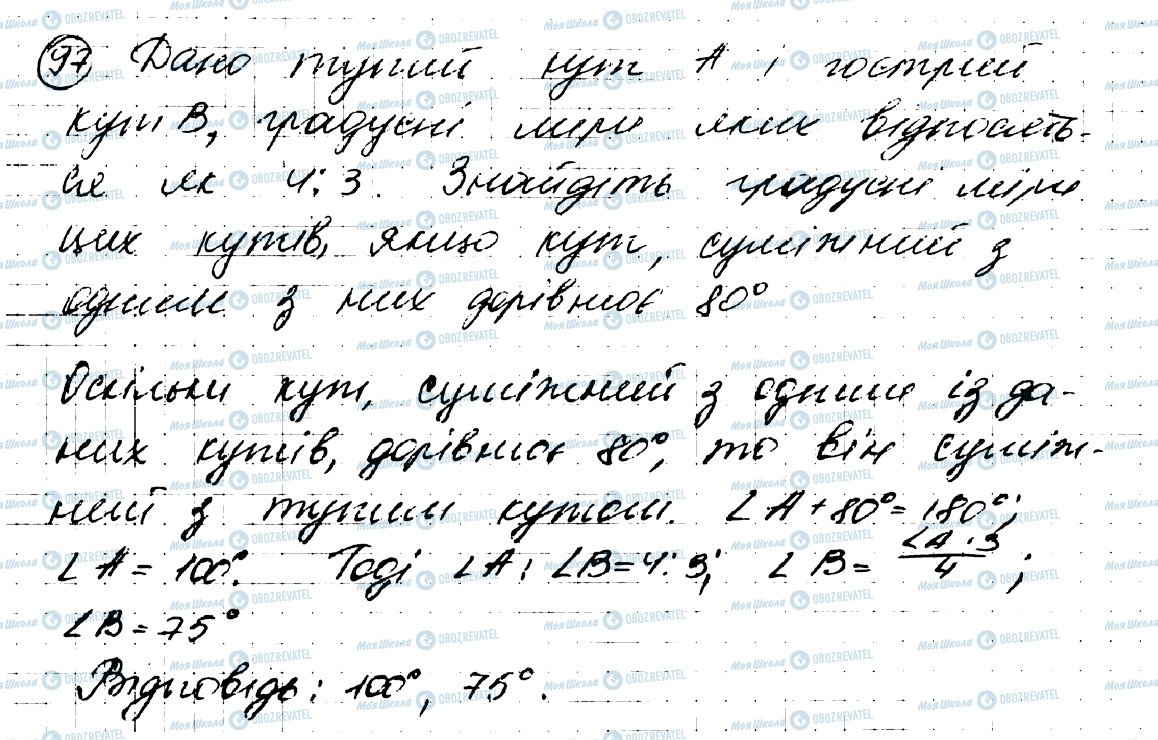 97 Дано тупий кут A і гострий
кут B, градусні міри яких відносять-
ся як 4:3. Знайдіть градусні міри
цих кутів, якщо кут, суміжний з
одним з них дорівнює 80°
Оскільки кут, суміжний з одним із да-
них кутів, дорівнює 80°, то він суміж-
ний з тупим кутом. ∠A + 80° = 180°;
∠A = 100°. Тоді ∠A : ∠B = 4:3; ∠B = ∠A · 3 / 4 ;
∠B = 75°
Відповідь: 100°, 75°.